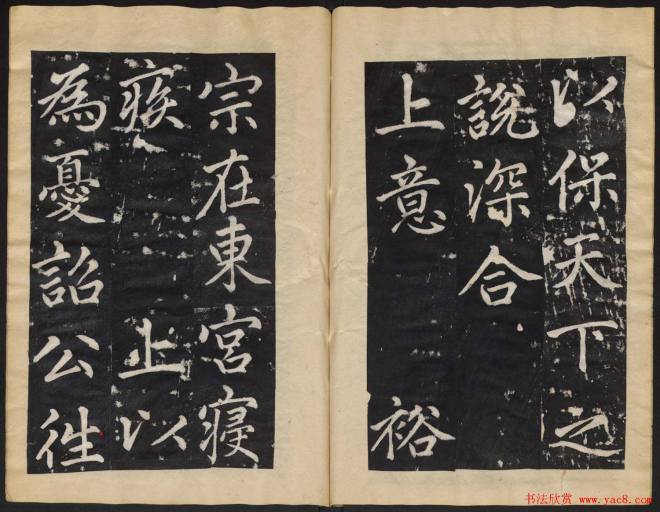 以保天下之
說深合
上意 裕
宗在東宮寢
疾 上以
為憂詔公徃
书法欣赏 www.yac8.com